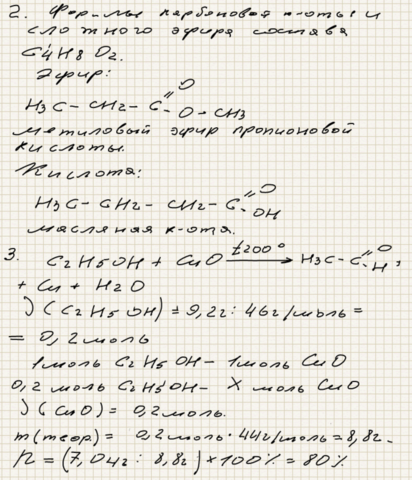 2. Формулы карбоновой к-оты и
сложного эфира состава
C4H8O2.
Эфир:
H3C – CH2 – C =O – O – CH3
метиловый эфир пропионовой
кислоты.
Кислота:
H3C – CH2 – CH2 – C =O OH
масляная к-ота.
3. C2H5OH + CuO t200° → H3C – C =O H,
+ Cu + H2O
ν(C2H5OH) = 9,2г : 46г/моль =
= 0,2моль
1моль C2H5OH – 1моль CuO
0,2 моль C2H5OH – X моль CuO
ν(CuO) = 0,2моль.
m(теор) = 0,2моль · 44г/моль = 8,8г.
η = (7,04г : 8,8г) × 100% = 80%